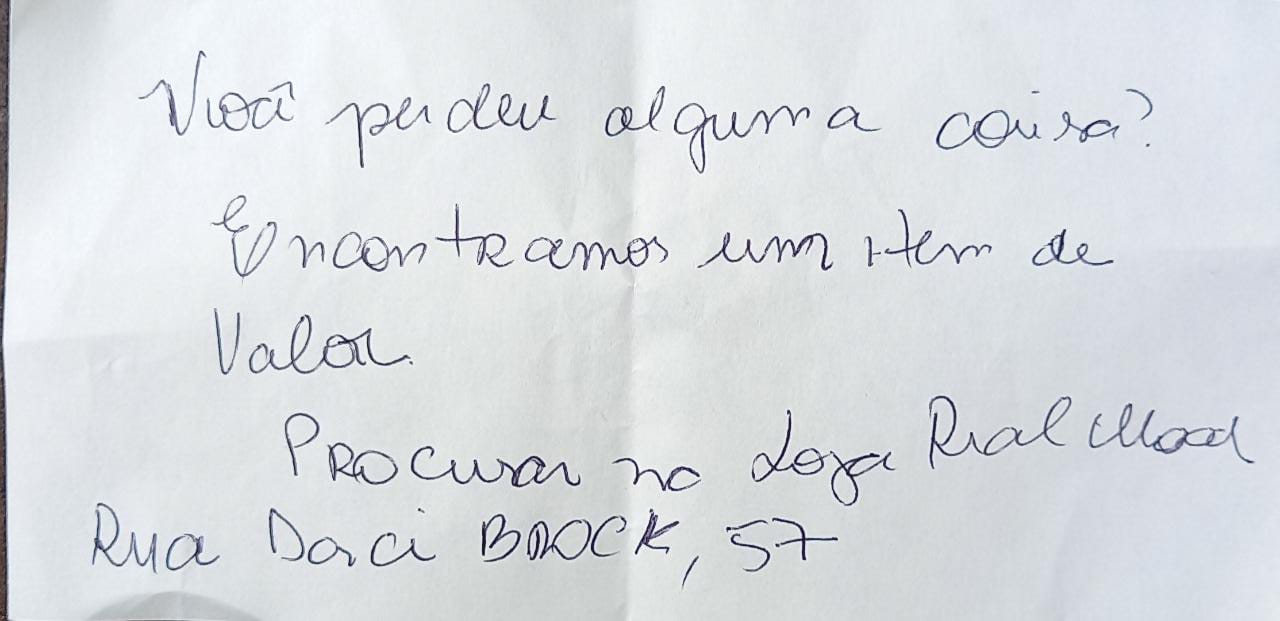 Você perdeu alguma coisa?
Encontramos um item de
Valor.
Procurar na Loja Real Mood
Rua Darci BROCK, 57